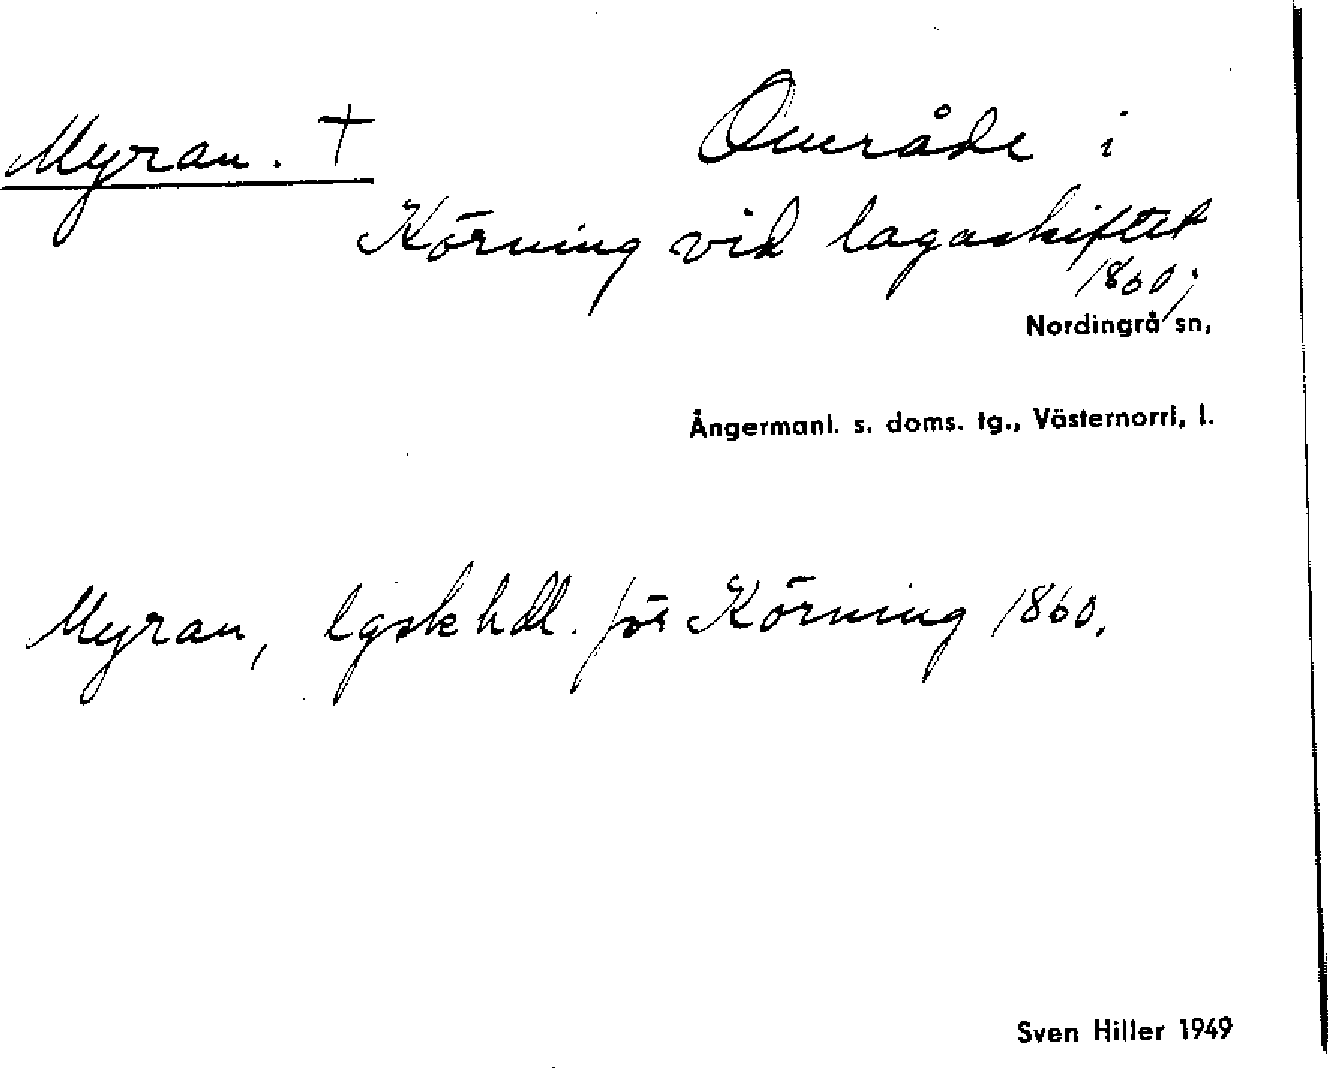 Myran. † Område i
Körning vid lagaskiftet
1860;
Nordingrå sn,
Ångermanl. s. doms. tg., Västernorrl, l.
Myran, lgsk hdl. för Körning 1860.
Sven Hiller 1949